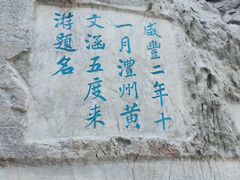 咸豐二年十
一月澧州黃
文涵五度来
游題名